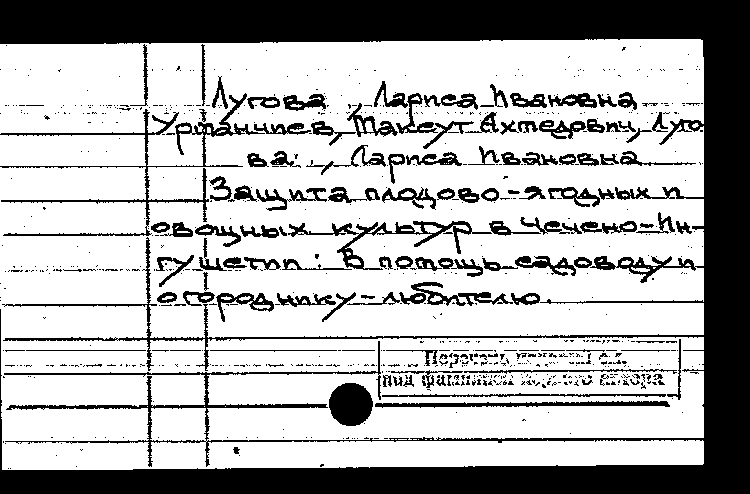 Лугова, Лариса Ивановна
Урманчиев, Максут Ахмедович, Луго
ва., Лариса Ивановна
Защита плодово-ягодных и
овощных культур в Чечено-Ин-
гушетии: В помощь садоводу и
огороднику-любителю.
Перечень
под фамилией автора